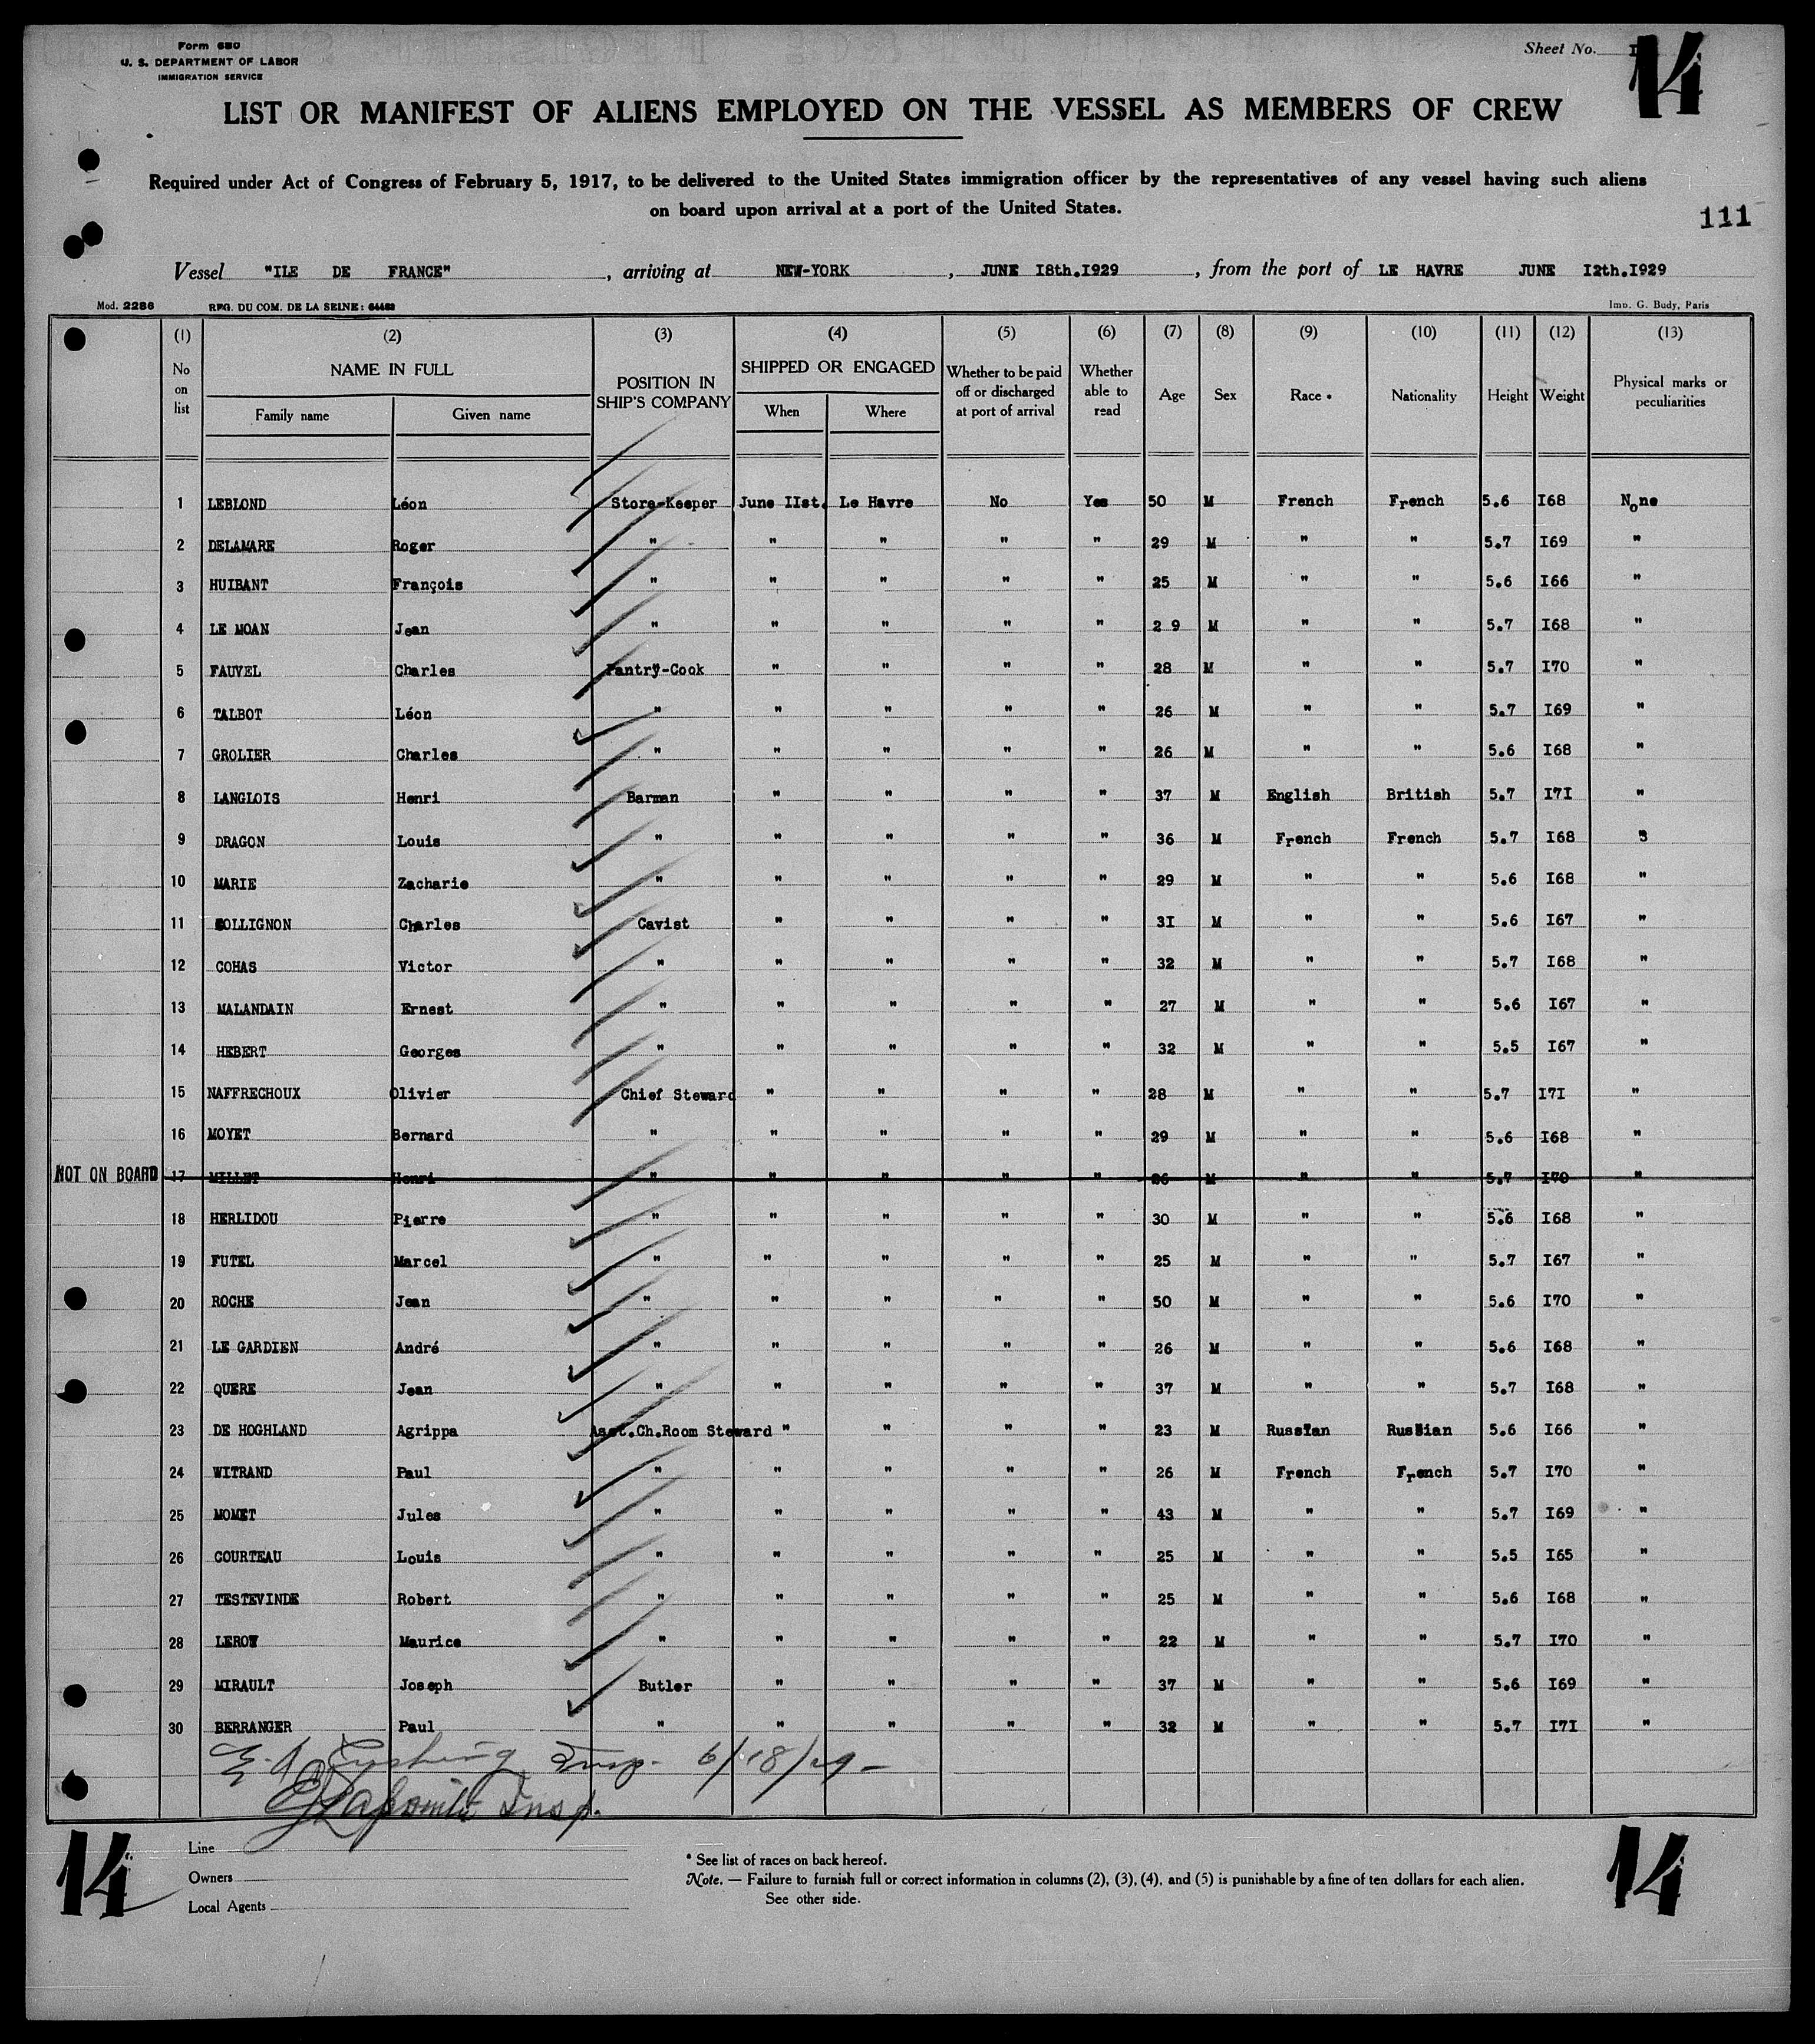 Form 680
U. S. DEPARTMENT OF LABOR
IMMIGRATION SERVICE
Sheet No.
14
LIST OR MANIFEST OF ALIENS EMPLOYED ON THE VESSEL AS MEMBERS OF CREW
Required under Act of Congress of February 5, 1917, to be delivered to the United States immigration officer by the representatives of any vessel having such aliens
on board upon arrival at a port of the United States.
111
Vessel "ILE DE FRANCE" , arriving at NEW-YORK , JUNE I8th.I929 , from the port of LE HAVRE JUNE I2th.I929
Mod. 2286 REG. DU COM. DE LA SEINE: Imp. G. Budy, Paris
(1) (2) (3) (4) (5) (6) (7) (8) (9) (10) (11) (12) (13)
No on list NAME IN FULL Family name Given name POSITION IN SHIP'S COMPANY SHIPPED OR ENGAGED When Where Whether to be paid off or discharged at port of arrival Whether able to read Age Sex Race * Nationality Height Weight Physical marks or peculiarities
1 LEBLOND Léon Store-Keeper June IIst. Le Havre No Yes 50 M French French 5.6 I68 None
2 DELAMARE Roger " " " " " 29 M " " 5.7 I69 "
3 HUIBANT François " " " " " 25 M " " 5.6 I66 "
4 LE MOAN Jean " " " " " 2 9 M " " 5.7 I68 "
5 FAUVEL Charles Pantry-Cook " " " " 28 M " " 5.7 I70 "
6 TALBOT Léon " " " " " 26 M " " 5.7 I69 "
7 GROLIER Charles " " " " " 26 M " " 5.6 I68 "
8 LANGLOIS Henri Barman " " " " 37 M English British 5.7 I7I "
9 DRAGON Louis " " " " " 36 M French French 5.7 I68 "
10 MARIE Zacharie " " " " " 29 M " " 5.6 I68 "
11 COLLIGNON Charles Cavist " " " " 3I M " " 5.6 I67 "
12 COHAS Victor " " " " " 32 M " " 5.7 I68 "
13 MALANDAIN Ernest " " " " " 27 M " " 5.6 I67 "
14 HEBERT Georges " " " " " 32 M " " 5.5 I67 "
15 NAFFRECHOUX Olivier Chief Steward " " " " 28 M " " 5.7 I7I "
16 MOYET Bernard " " " " " 29 M " " 5.6 I68 "
NOT ON BOARD 17 MILLET Henri " " " " " 26 M " " 5.7 I70 "
18 HERLIDOU Pierre " " " " " 30 M " " 5.6 I68 "
19 FUTEL Marcel " " " " " 25 M " " 5.7 I67 "
20 ROCHE Jean " " " " " 50 M " " 5.6 I70 "
21 LE GARDIEN André " " " " " 26 M " " 5.6 I68 "
22 QUERE Jean " " " " " 37 M " " 5.7 I68 "
23 DE HOGHLAND Agrippa Asst.Ch.Room Steward " " " " 23 M Russian Russian 5.6 I66 "
24 WITRAND Paul " " " " " 26 M French French 5.7 I70 "
25 MOMET Jules " " " " " 43 M " " 5.7 I69 "
26 COURTEAU Louis " " " " " 25 M " " 5.5 I65 "
27 TESTEVINDE Robert " " " " " 25 M " " 5.6 I68 "
28 LEROY Maurice " " " " " 22 M " " 5.7 I70 "
29 MIRAULT Joseph Butler " " " " 37 M " " 5.6 I69 "
30 BERRANGER Paul " " " " " 32 M " " 5.7 I7I "
Insp. 6/18/29
Insp.
14
Line
Owners
Local Agents
* See list of races on back hereof.
Note. — Failure to furnish full or correct information in columns (2), (3), (4), and (5) is punishable by a fine of ten dollars for each alien.
See other side.
14